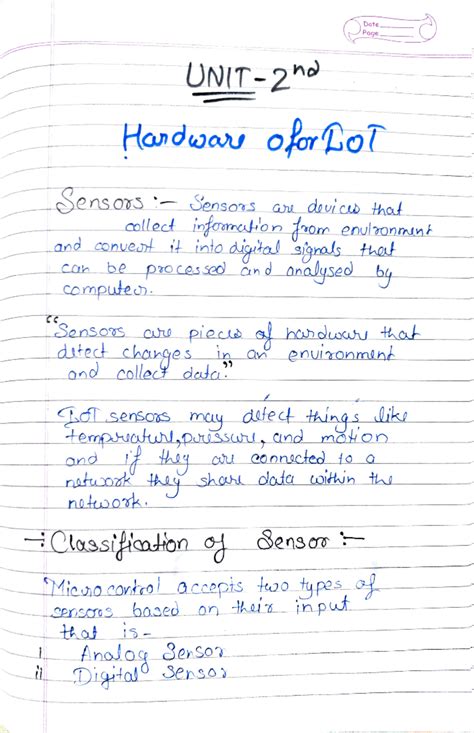 Date
Page
UNIT-2nd
Hardware ofor IOT
Sensors :- Sensors are devices that
collect information from environment
and convert it into digital signals that
can be processed and analysed by
computer.
"Sensors are pieces of hardware that
detect changes in an environment
and collect data."
IOT sensors may detect things like
temperature, pressure, and motion
and if they are connected to a
network they share data within the
network.
-: Classification of Sensor :-
Microcontrol accepts two types of
sensors based on their input
that is-
i. Analog Sensor
ii Digital Sensor